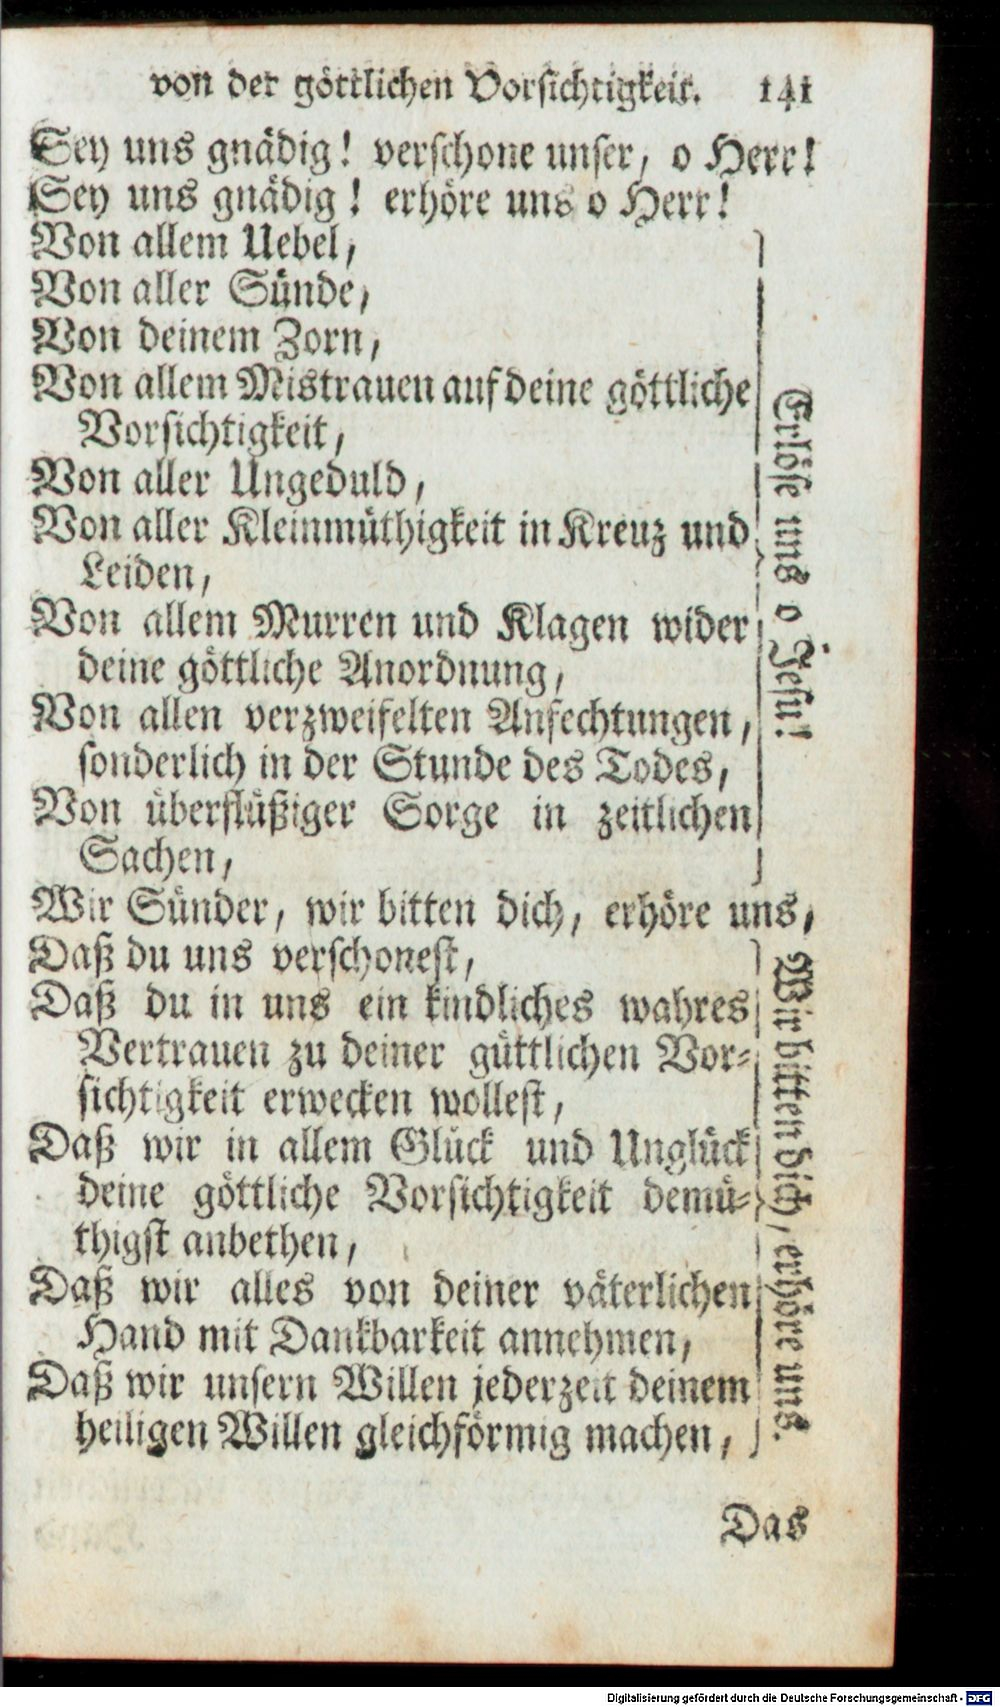 von der göttlichen Vorsichtigkeit. 141
Sey uns gnädig! verschone unser, o Herr!
Sey uns gnädig! erhöre uns o Herr!
Von allem Uebel,
Von aller Sünde,
Von deinem Zorn,
Von allem Mistrauen auf deine göttliche
Vorsichtigkeit,
Von aller Ungeduld,
Von aller Kleinmüthigkeit in Kreuz und
Leiden,
Von allem Murren und Klagen wider
deine göttliche Anordnung,
Von allen verzweifelten Anfechtungen,
sonderlich in der Stunde des Todes,
Von überflüßiger Sorge in zeitlichen
Sachen,
Erlöse uns o Jesu!
Wir Sünder, wir bitten dich, erhöre uns,
Daß du uns verschonest,
Daß du in uns ein kindliches wahres
Vertrauen zu deiner güttlichen Vor-
sichtigkeit erwecken wollest,
Daß wir in allem Glück und Unglück
deine göttliche Vorsichtigkeit demü-
thigst anbethen,
Daß wir alles von deiner väterlichen
Hand mit Dankbarkeit annehmen,
Daß wir unsern Willen jederzeit deinem
heiligen Willen gleichförmig machen,
Wir bitten dich, erhöre uns.
Das
Digitalisierung gefördert durch die Deutsche Forschungsgemeinschaft - DFG